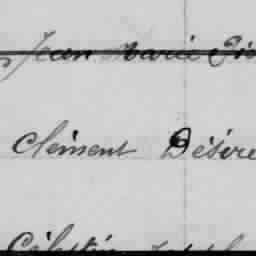 Jean Marie
Clément Désiré
Célestin